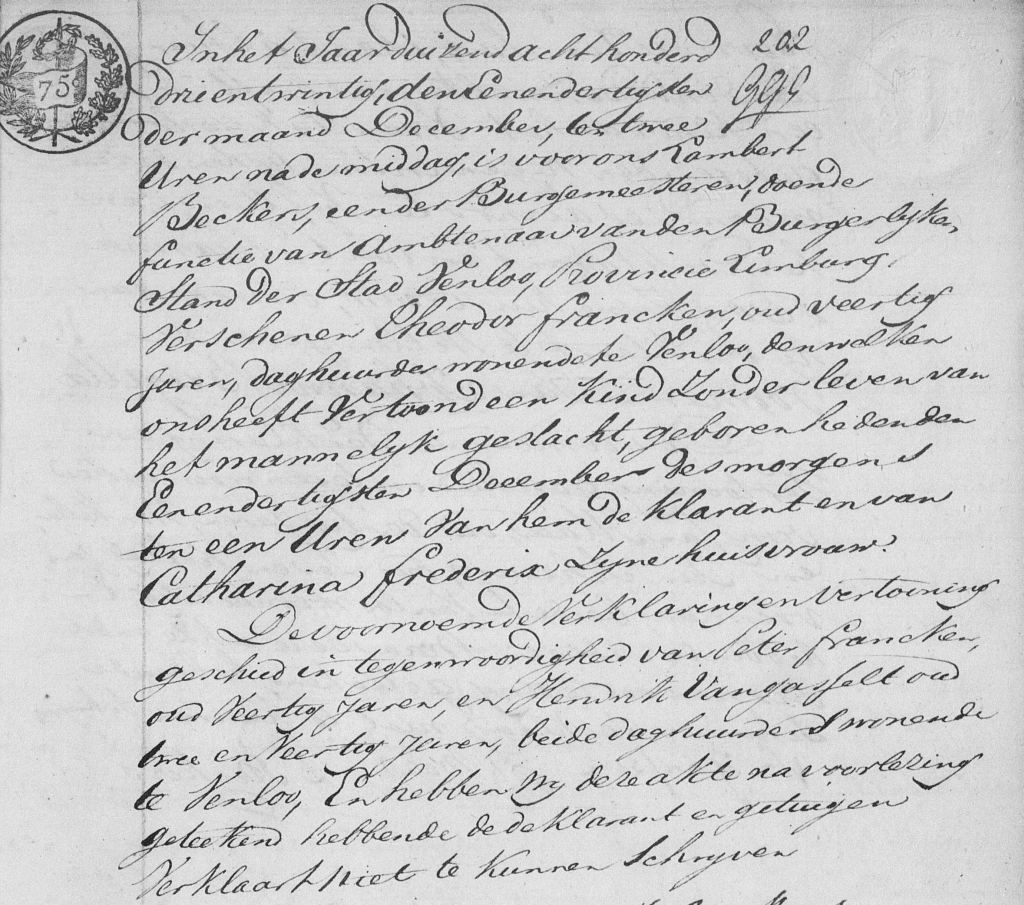 In het Jaar duizend acht honderd 202
drie en twintig, den Een en dertigsten
75
der maand December, ten twee
Uren na de middag, is voor ons Lambert
Beckers, een der Burgemeesteren, doende
functie van Ambtenaar van den Burgerlyken
Stand der Stad Venloo, Provincie Limburg,
Verschenen Theodor francken, oud veertig
Jaren, daghuurder wonende te Venloo, den welken
ons heeft Vertoond een Kind Zonder leven van
het mannelyk geslacht, geboren heden den
Een en dertigsten December des morgens
ten een Uren Van hem de Klarant en van
Catharina frederix Zyne huisvrouw.
De voornoemde Verklaring en vertooning
geschied in tegenwoordigheid van Peter francken,
oud Veertig Jaren, en Hendrik Van gasselt oud
twee en Veertig Jaren, beide daghuurders wonende
te Venloo, En hebben Wy deze akte na voorlezing
geteekend hebbende de deKlarant en getuigen
Verklaart Niet te Kunnen Schryven